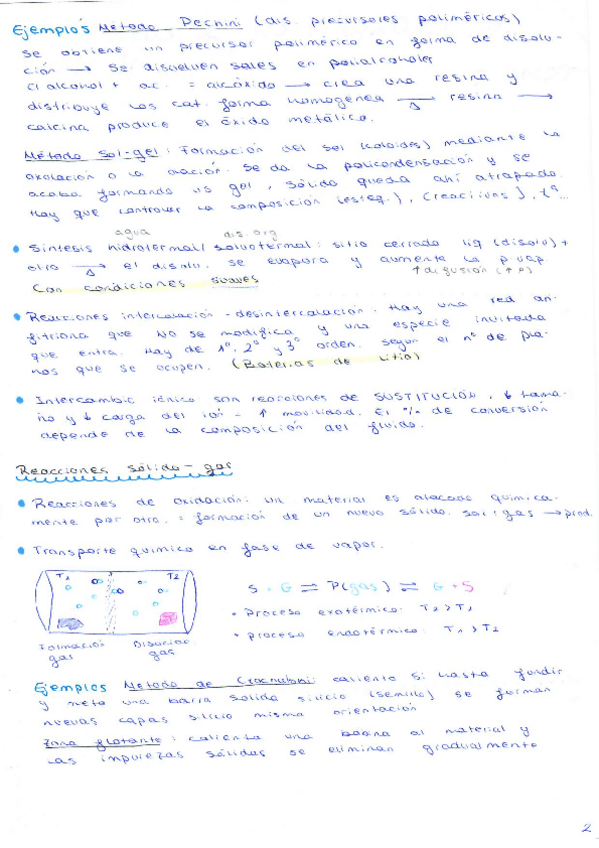 Ejemplos Método Pechini (dis. precursores poliméricos)
Se obtiene un precursor polimérico en forma de disolu-
ción → Se disuelven sales en polialcoholes
el alcohol + ac. = alcóxido → crea una resina y
distribuye los cat. forma homogénea →Δ resina →
calcina produce el óxido metálico.
Método Sol-gel: Formación del sol (coloides) mediante la
oxolación o la olación. Se da la policondensación y se
acaba formando un gel, sólido queda ahí atrapado.
Hay que controlar la composición (esteq.),
agua dis. org
• Síntesis hidrotermal/solvotermal: sitio cerrado liq (disolv) +
otro →Δ el disolv. se evapora y aumente la p vap
Con condiciones suaves ↑ difusión (↑ P)
• Reacciones intercalación-desintercalación. Hay una red an-
fitriona que no se modifica y una especie invitada
que entra. Hay de 1º, 2º y 3º orden. según el nº de pla-
nos que se ocupen. (Baterías de litio)
• Intercambio iónico son reacciones de SUSTITUCIÓN, ↓ tama-
ño y ↓ carga del ión = ↑ movilidad. El % de conversión
depende de la composición del fluido.
Reacciones sólido-gas
• Reacciones de oxidación: un material es atacado química-
mente por otro. = formación de un nuevo sólido. sol + gas → prod.
• Transporte químico en fase de vapor.
T1 S T2
S + G ⇌ P(gas) ⇌ G + S
• Proceso exotérmico: T2 > T1
• Proceso endotérmico: T1 > T2
Formación Disociac.
gas gas
Ejemplos Método de Czochralski: caliento Si hasta fundir
y meto una barra sólida silicio (semilla) se forman
nuevas capas silicio misma orientación
Zona flotante: calienta una banda al material y
las impurezas sólidas se eliminan gradualmente
2